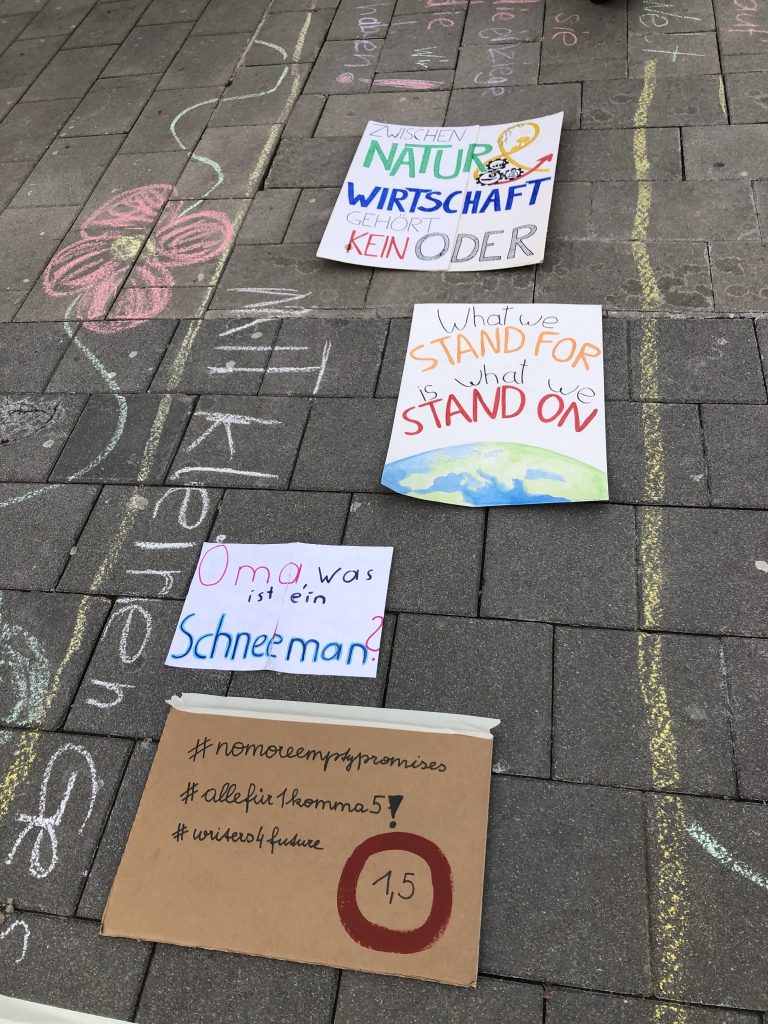 haben
wir
einzige
sie
ZWISCHEN
NATUR &
WIRTSCHAFT
GEHÖRT
KEIN ODER
What we
STAND FOR
is what we
STAND ON
MIT kleinen Ge
Oma, was
ist ein
Schneeman?
#nomoreemptypromises
#allefür1komma5!
#writers4future
1,5